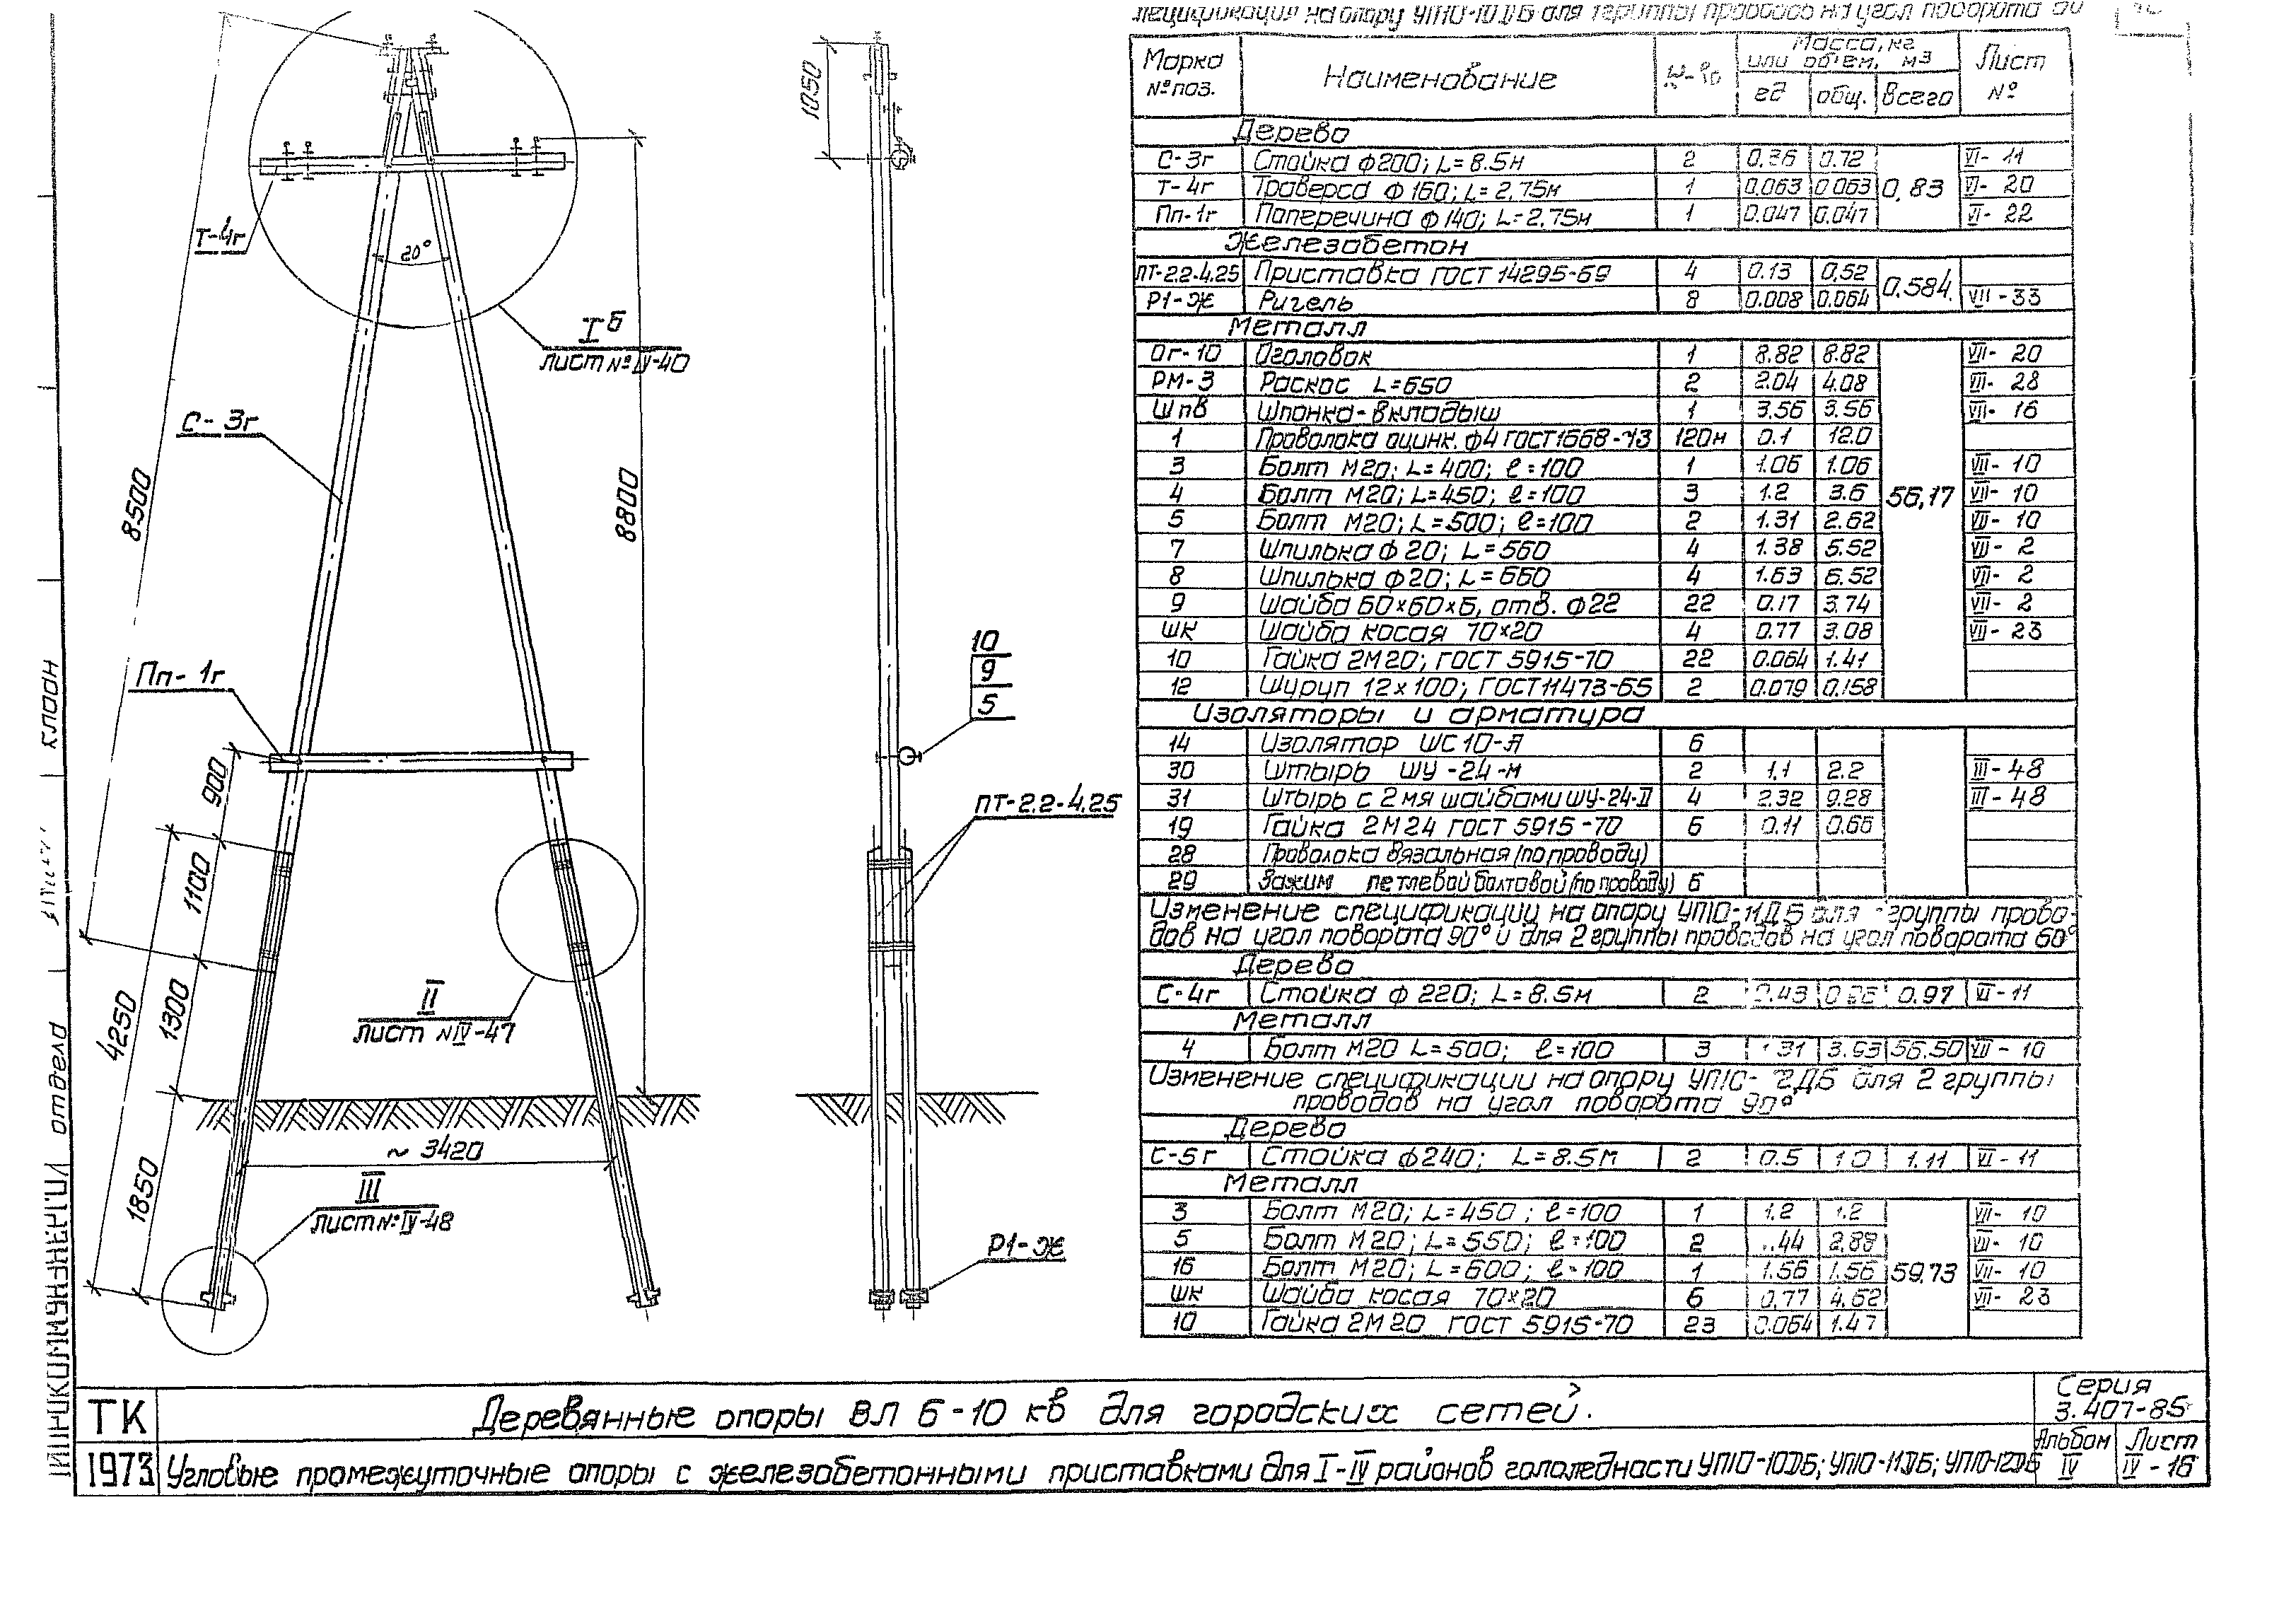 Спецификация на опору УП10-10ДБ для 1 группы проводов на угол поворота 60
Марка № поз. | Наименование | Масса, кг или объем, м3 | Лист №
ед | общ. | Всего
Дерево
С-3г | Стойка ф200; L=8.5м | 2 | 0.36 | 0.72 | VI-11
Т-4г | Траверса ф160; L=2,75м | 1 | 0.063 | 0.063 | 0,83 | VI-20
Пп-1г | Поперечина ф140; L=2,75м | 1 | 0.047 | 0.047 | VI-22
Железобетон
ПТ-2.2-4.25 | Приставка ГОСТ 14295-69 | 4 | 0.13 | 0,52 | 0.584
Р1-Ж | Ригель | 8 | 0.008 | 0.064 | VII-33
Металл
Ог-10 | Оголовок | 1 | 8.82 | 8.82 | VII-20
РМ-3 | Раскос L=650 | 2 | 2.04 | 4.08 | VII-28
ШпВ | Шпонка-вкладыш | 1 | 3.56 | 3.56 | VII-16
1 | Проволока оцинк. ф4 ГОСТ1668-73 | 120м | 0.1 | 12.0
3 | Болт М20; L=400; ℓ=100 | 1 | 1.06 | 1.06 | VII-10
4 | Болт М20; L=450; ℓ=100 | 3 | 1.2 | 3.6 | 56,17 | VII-10
5 | Болт М20; L=500; ℓ=100 | 2 | 1.31 | 2.62 | VII-10
7 | Шпилька ф20; L=560 | 4 | 1.38 | 5.52 | VII-2
8 | Шпилька ф20; L=660 | 4 | 1.63 | 6.52 | VII-2
9 | Шайба 60×60×6, отв. ф22 | 22 | 0.17 | 3.74 | VII-2
ШК | Шайба косая 70×20 | 4 | 0.77 | 3.08 | VII-23
10 | Гайка 2М20; ГОСТ 5915-70 | 22 | 0.064 | 1.41
12 | Шуруп 12×100; ГОСТ11473-65 | 2 | 0.079 | 0.158
Изоляторы и арматура
14 | Изолятор ШС10-А | 6
30 | Штырь ШУ-24-М | 2 | 1.1 | 2.2 | III-48
31 | Штырь с 2мя шайбами ШУ-24-II | 4 | 2.32 | 9.28 | III-48
19 | Гайка 2М24 ГОСТ 5915-70 | 6 | 0.11 | 0.66
28 | Проволока вязальная (по проводу)
29 | Зажим петлевой болтовой (по проводу) | 6
Изменение спецификации на опору УП10-11ДБ для группы прово-
дов на угол поворота 90° и для 2 группы проводов на угол поворота 60°
Дерево
С-4г | Стойка ф 220; L=8.5м | 2 | 0.43 | 0.86 | 0.97 | VI-11
Металл
4 | Болт М20 L=500; ℓ=100 | 3 | 1.31 | 3.93 | 56.50 | VII-10
Изменение спецификации на опору УП10-12ДБ для 2 группы
проводов на угол поворота 90°
Дерево
С-5г | Стойка ф240; L=8.5м | 2 | 0.5 | 1.0 | 1.11 | VI-11
Металл
3 | Болт М20; L=450; ℓ=100 | 1 | 1.2 | 1.2 | VII-10
5 | Болт М20; L=550; ℓ=100 | 2 | 1.44 | 2.88 | VII-10
16 | Болт М20; L=600; ℓ=100 | 1 | 1.56 | 1.56 | 59.73 | VII-10
ШК | Шайба косая 70×20 | 6 | 0.77 | 4.62 | VII-23
10 | Гайка 2М20 ГОСТ 5915-70 | 23 | 0.064 | 1.47
1050
Т-4г
20°
Iб
лист № IV-40
С-3г
8500
8800
Пп-1г
10
9
5
900
1100
ПТ-2.2-4.25
II
лист № IV-47
1300
4250
~ 3420
1850
III
лист № IV-48
Р1-Ж
отдела
ТК
Деревянные опоры ВЛ 6-10 кв для городских сетей.
Серия
3.407-85
1973
Угловые промежуточные опоры с железобетонными приставками для I-IV районов гололедности УП10-10ДБ; УП10-11ДБ; УП10-12ДБ
Альбом
IV
Лист
IV-16